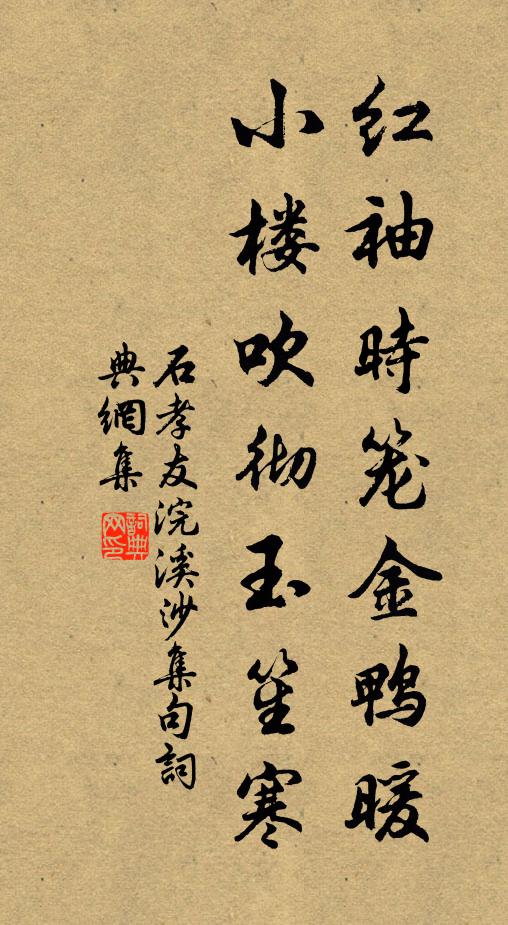 红袖時笼金鸭暖
小楼吹彻玉笙寒
石孝友浣溪沙集句詞
典網集
詞典网印